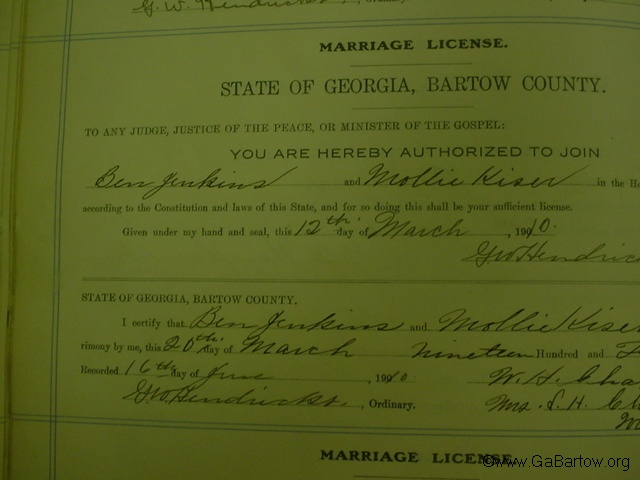 G. W. Hendricks
MARRIAGE LICENSE.
STATE OF GEORGIA, BARTOW COUNTY.
TO ANY JUDGE, JUSTICE OF THE PEACE, OR MINISTER OF THE GOSPEL:
YOU ARE HEREBY AUTHORIZED TO JOIN
Ben Jenkins and Mollie Kiser in the Ho
according to the Constitution and laws of this State, and for so doing this shall be your sufficient license.
Given under my hand and seal, this 12th day of March, 1910.
GW Hendric
STATE OF GEORGIA, BARTOW COUNTY.
I certify that Ben Jenkins and Mollie Kiser
rimony by me, this 20th day of March nineteen Hundred and
Recorded 16th day of June, 1910 W. H. Cha
GW Hendricks, Ordinary. Mrs. S. H.
MARRIAGE LICENSE.
©www.GaBartow.org